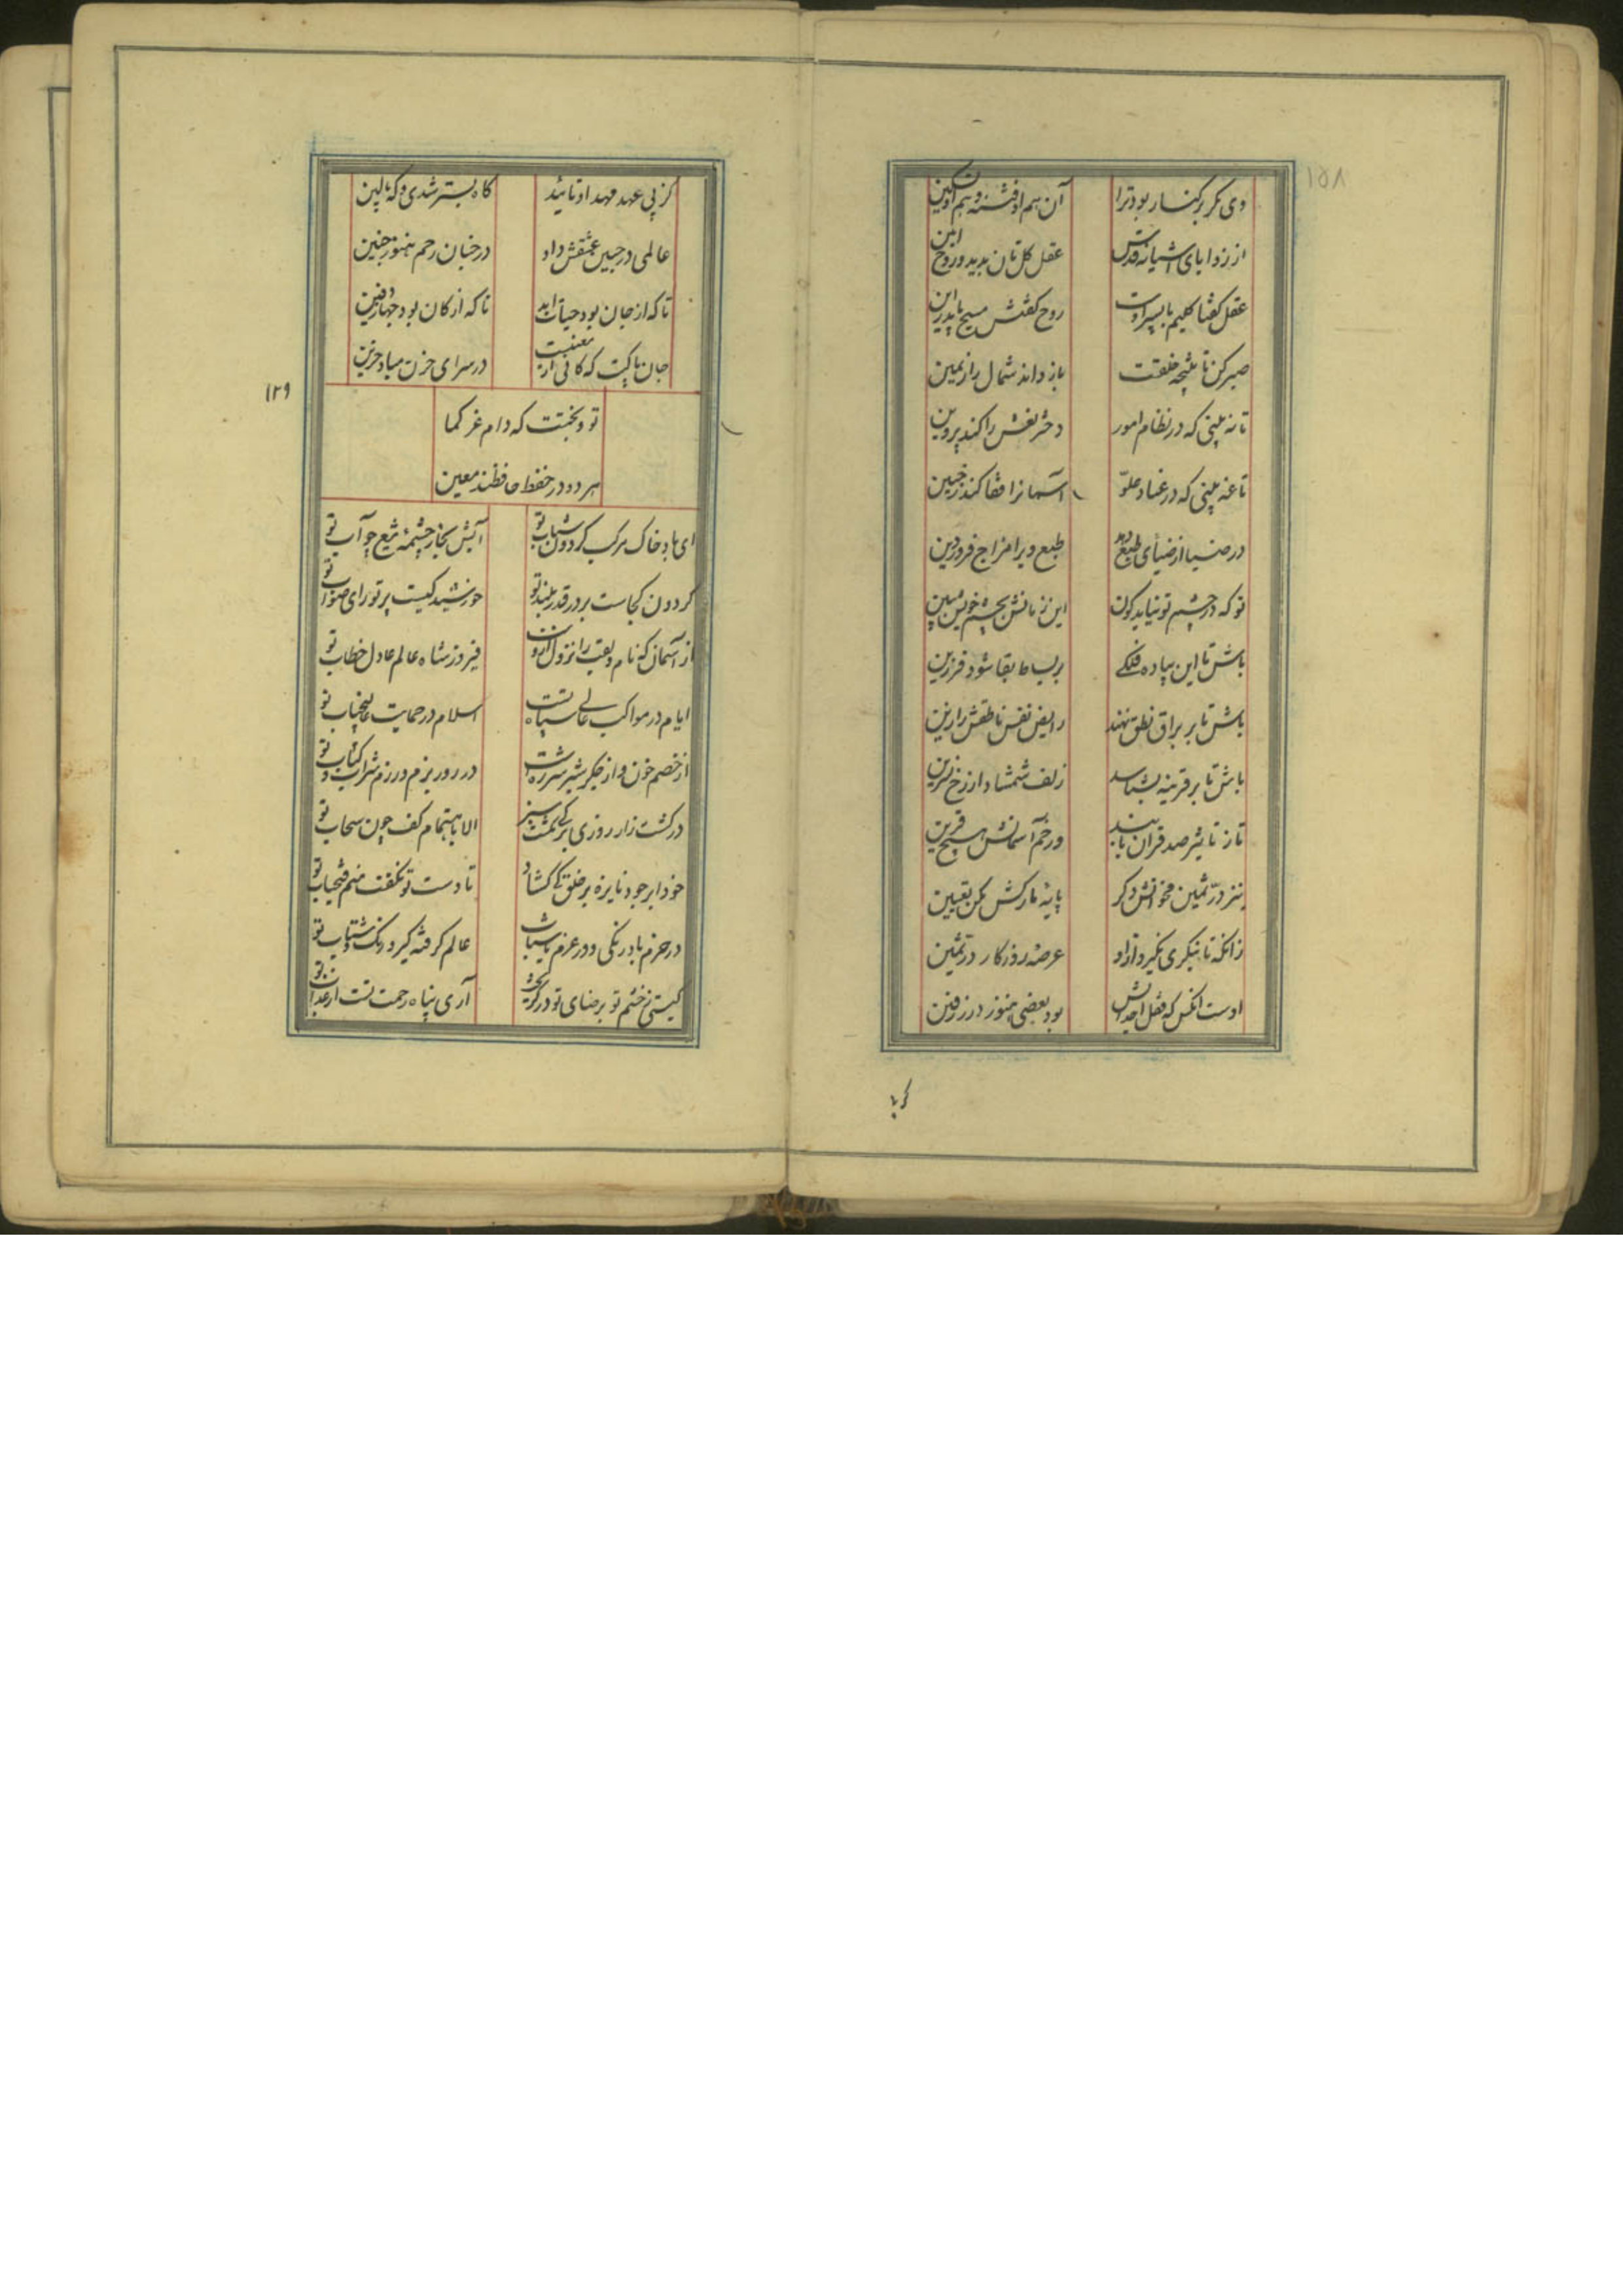 ۱۵۸
وی دگر در کنار بود ترا آن هم او فتنه و هم او تسکین
از زوایای آشیانه قدس عقل کل تان بدید و روح امین
عقل گفتا کلیم با پسر است روح گفتش مسیح با پدر این
صبر کن تا نتیجه خلقت باز داند شمال را ز یمین
تا نه بینی که در نظام امور دختر نعش را کند پروین
تا نه بینی که در عناد علو آسمانرا قفا کند ز جبین
در صبا از صبای طبع دهد طبع دیرا مزاج فروردین
تو که در چشم تو نیاید کون این زمانش بچشم خویش مبین
باش تا این پیاده فلکی بر بساط بقا شود فرزین
باش تا بر براق نطق نهند رایض نفس ناطقش را زین
باش تا بر قرینه بشناسد زلف شمشاد از رخ نسرین
تا ز تاثیر صد قران یابند در خم آسمانش هیچ قرین
نیز در ثمین مخوانش دگر پایه مدارکش مکن تعیین
زانکه تا بنگری بگیرد ازو عرصه روزگار در ثمین
اوست آنکس که قفل احداثش بود بعضی هنوز در زرفین
کز پی
کز پی عهد مهد او تائید گاه بستر شدی و گه بالین
عالمی در جبین عشقش داد در خبان رحم هنوز جنین
تا که از جان بود حیات ابد تا که از کان بود جهاز دفین
جان پاکت که کانی از معنیست در سرای حزن مباد حزین
۱۲۹
تو و بختت که دام عز کما
هر دو در حفظ حافظند معین
ای باد خاک مرکب گردون شتاب تو آتش بخار چشمه تیغ چو آب تو
گردون کجاست بر در قدر بلند تو خورشید کیست پرتو رای صواب تو
از آسمان که نام و لقب را نزول ازوست فیروز شاه عالم عادل خطاب تو
ایام در مواکب عالی سپاه تست اسلام در حمایت عالیجناب تو
از خصم خون و از جگر شیر شرزه است در روز بزم و رزم شراب و کتاب تو
در کشت زار روزی برگی نگشت سبز الا باهتمام کف چون سحاب تو
خود ابر جود نایزه بر خلق کی گشاد تا دست تو نگفت منم فتحیاب تو
در حزم با درنگی و در عزم با شتاب عالم گرفته گیر درنگ و شتاب تو
گیتی ز خشم تو برضای تو در گریخت آری پناه رحمت تست از عذاب تو